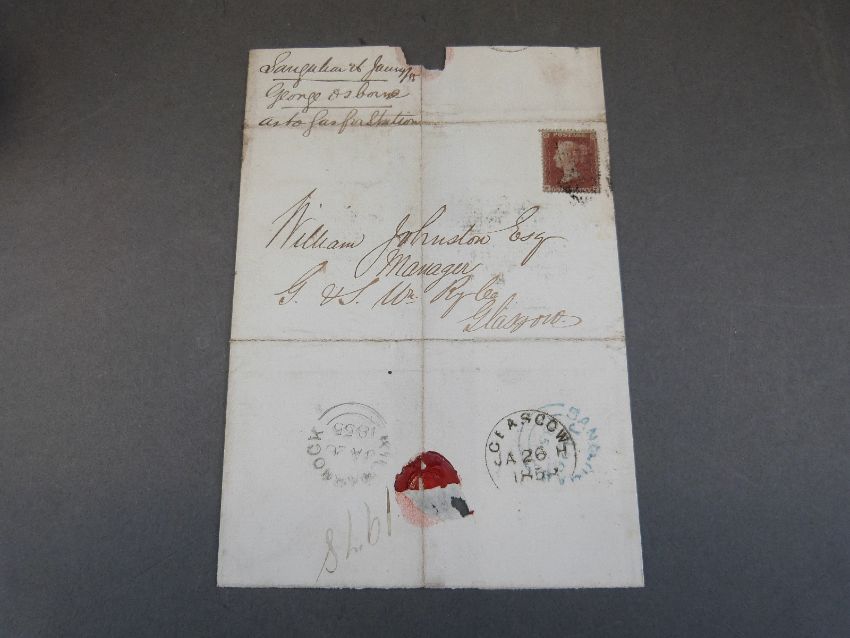 Sanquhar 26 Jany/58
George Osborne
as to Gas for Station
William Johnston Esq
Manager
G. & S. Wn. Ry Co
Glasgow
KILMARNOCK
JA 26
1858
GLASGOW
A 26 H
185
SANQUHAR
1978